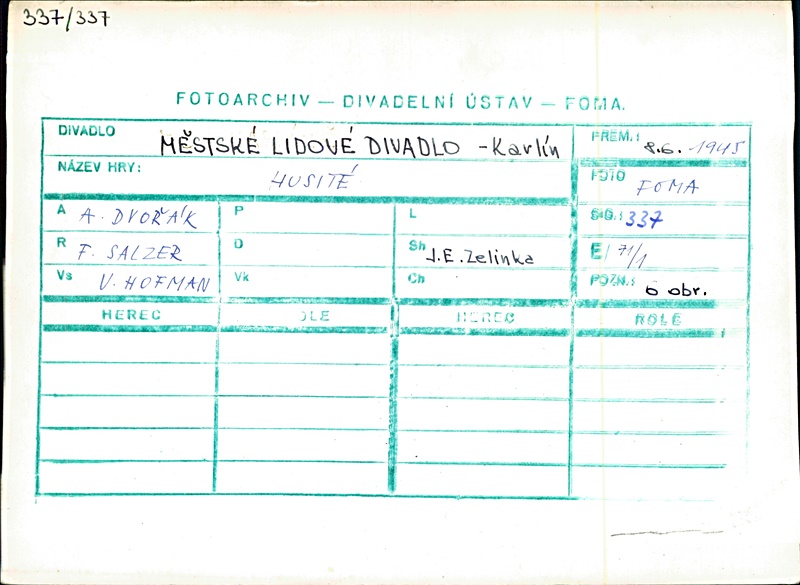 337/337
FOTOARCHIV — DIVADELNÍ ÚSTAV — FOMA.
DIVADLO MĚSTSKÉ LIDOVÉ DIVADLO - Karlín PREM.: 8.6. 1945
NÁZEV HRY: HUSITÉ FOTO FOMA
A A. DVOŘÁK P L SIG.: 337
R F. SALZER D Sh J.E. Zelinka E/ 71/1
Vs V. HOFMAN Vk Ch POZN.: 6 obr.
HEREC OLE HEREC ROLE